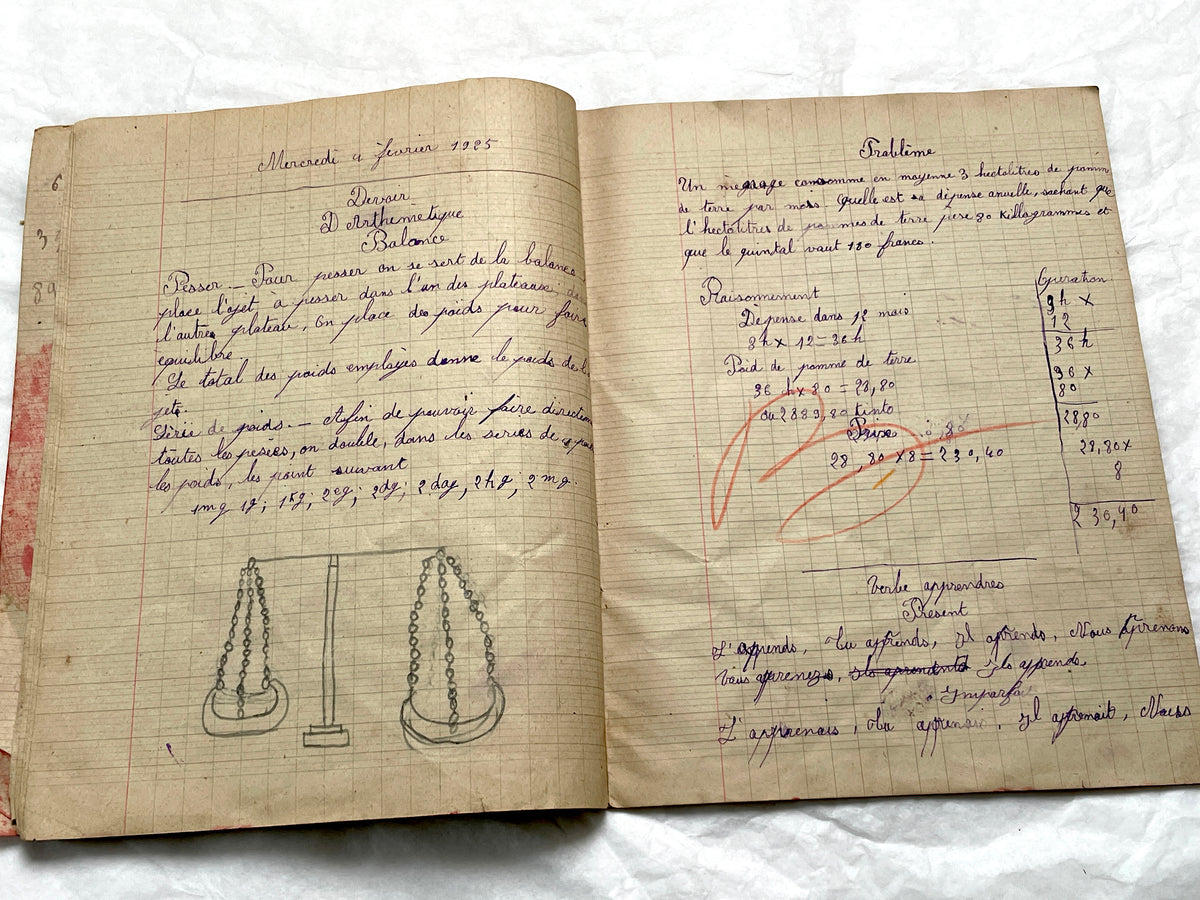 6
Mercredi 4 février 1925
Devoir
D'Arthemetique
Balance
Pesser _ Pour pesser on se sert de la balance
place l'ojet a pesser dans l'un des plateaux, da
l'autre plateau, on place des poids pour faire
equilibre.
Le total des poids employés donne le poids de l
jets.
Série de poids. _ Afin de pouvoir faire direction
toutes les pesées, on double, dans les series de
les poids, les point suivant
1mg 1g; 1kg; 2cg; 2dg; 2dag, 2hg, 2mg.
Problème
Un menage consomme en moyenne 3 hectolitres de pomm
de terre par mois. Quelle est sa dépense anuelle, sachant que
l'hectolitres de pommes de terre pese 80 killogrammes et
que le quintal vaut 180 francs.
Raisonnement
Dépense dans 12 mois
3h x 12 = 36h
Poid de pomme de terre
36 h x 80 = 28,80
ou 2889,80 kinto
Prix
28,80 x 8 = 230,40
Operation
3h x
12
36h
36 x
80
28,80
28,80 x
8
230,40
Verbe apprendres
Présent
J'apprends, Tu apprends, Il aprends, Nous Aprenons
Vous aprenez, Ils apprends
Imparfai
J'apprenais, Tu apprenais, Il aprenait, Nous